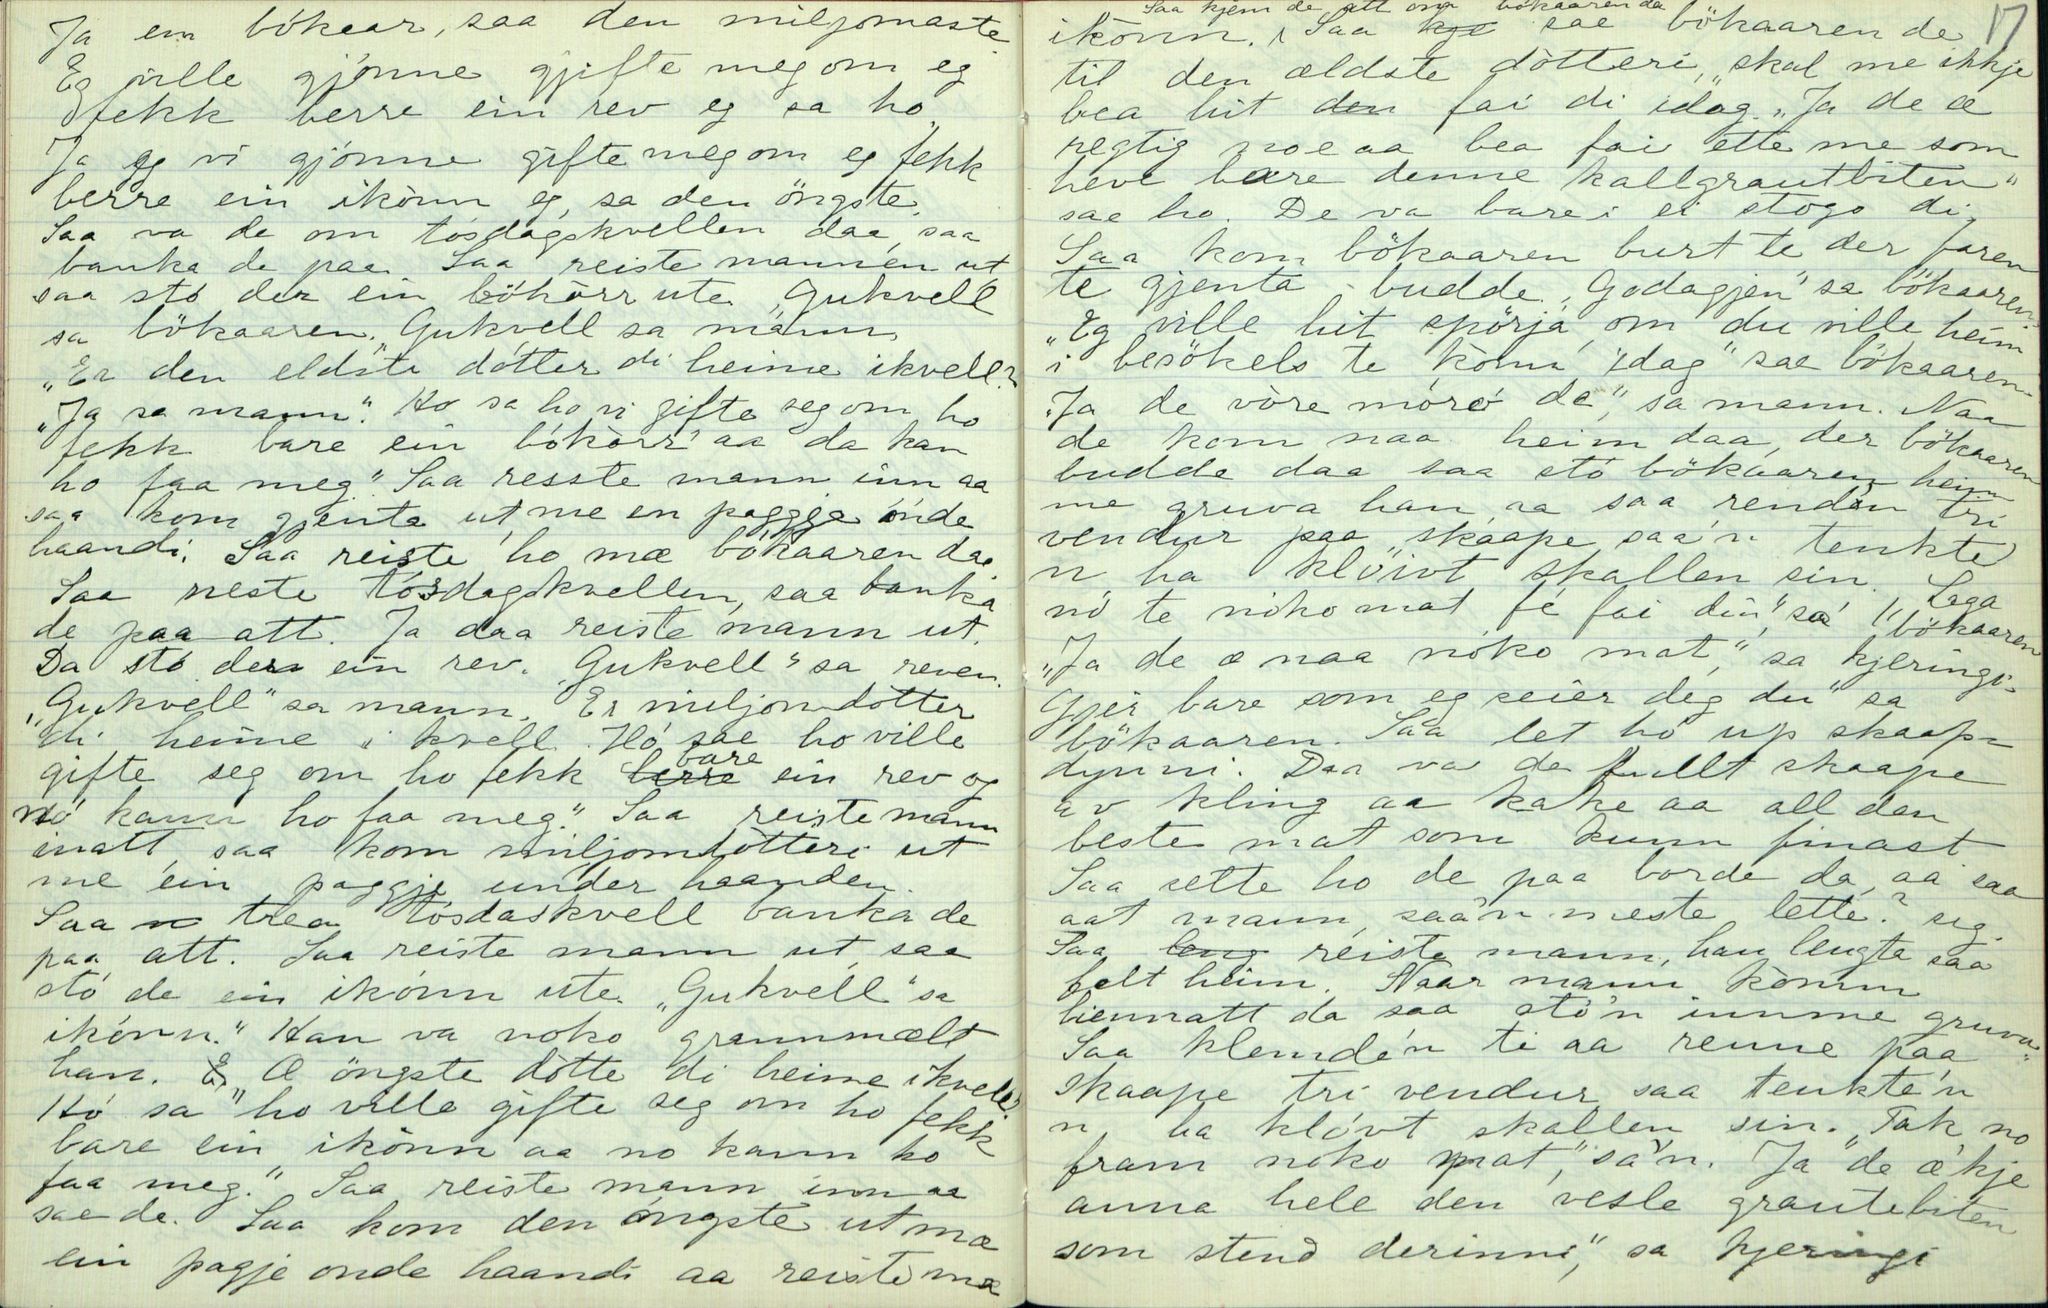 Ja ein bökaar, saa den miljomaste.
Eg ville gjönne gjifte meg om eg
fekk berre ein rev eg sa ho.
Ja eg vi gjönne gifte meg om eg fekk
berre ein ikònn eg, sa den öngste.
Saa va de om tósdagskvellen daa, saa
banka de paa. Saa reiste mannen ut
saa stó der ein bökòrr ute. Gukvell
sa bökaaren. „Gukvell sa mann.
„Ea den eldste dòtter di heime ikvell?
„Ja sa mann“. Ho sa ho vi gifte seg om ho
fekk bare ein bókòrr aa da kan
ho faa meg.“ Saa resste mann inn aa
saa kom gjenta ut me en paggje ónde
haandi. Saa reiste ho mæ bökaaren daa.
Saa neste tósdagskvellen, saa banka
de paa att. Ja daa reiste mann ut.
Da stó der ein rev. „Gukvell“ sa reven.
„Gukvell“ sa mann. Er miljomdòtter
di heime i kvell. Hó sae ho ville
gifte seg om ho fekk berre bare ein rev og
nó kann ho faa meg.“ Saa reiste mann
inatt, saa kom miljomdòtteri ut
me ein paggje under haanden.
Saa n trea tósdaskvell banka de
paa att. Saa reiste mann ut, saa
stó de ein ikònn ute. „Gukvell“ sa
ikònn.“ Han va noko grannmælt
han. Er Æ öngste dòtte di heime ikvell?
Hó sa „ho ville gifte seg om ho fekk
bare ein ikònn aa no kann ho
faa meg.“ Saa reiste mann inn aa
sae de. Saa kom den öngste ut mæ
ein pagje onde haandi aa reiste mæ
17
Saa kjem de att om bökaaren da
ikònn. Saa kje sae bökaaren de
til den ældste dòtteri, „skal me ikkje
bea hit den fai di idag. „Ja de æ
regtig noe aa bea fai ette me som
heve bære denne kallgrautbiten“
sae ho. De va bare i ei stogo di.
Saa kom bökaaren burt te der faren
te gjenta budde. „Godagjen“ sa bökaaren.
„Eg ville hit spörja om du ville heim
i besökels te kònn idag“ sae bökaaren.
„Ja de vòre mòró de“, sa mann. Naa
de kom naa heim daa, der bökaaren
budde daa saa stó bökaaren heim
me gruva han, aa saa rendén tri
vendur paa skaape, saa'n tenkte
n ha klöivt skallen sin. Laga
nó te nóko mat fé fai din“, sa bökaaren
„Ja de æ naa nóko mat“, sa kjeringi.
Gjer bare som eg seier deg du“ sa
bökaaren. Saa let hó up skaap-
dynni. Daa va de fullt skaape
av kling aa kake aa all den
beste mat som kunn finast.
Saa sette ho de paa borde da, aa saa
aat mann, saa'n meste lette? seg.
Saa leng reiste mann, han lengta saa
felt heim. Naar mann kòmm
hiennatt da saa stó'n innme gruva.
Saa klemdé'n ti aa renne paa
skaape tri vendur, saa tenkte'n
n ha klóvt skallen sin. „Tak no
fram noko mat“, sa'n. „Ja de æ'kje
anna hele den vesle grautebiten
som stend derinni“, sa kjeringi